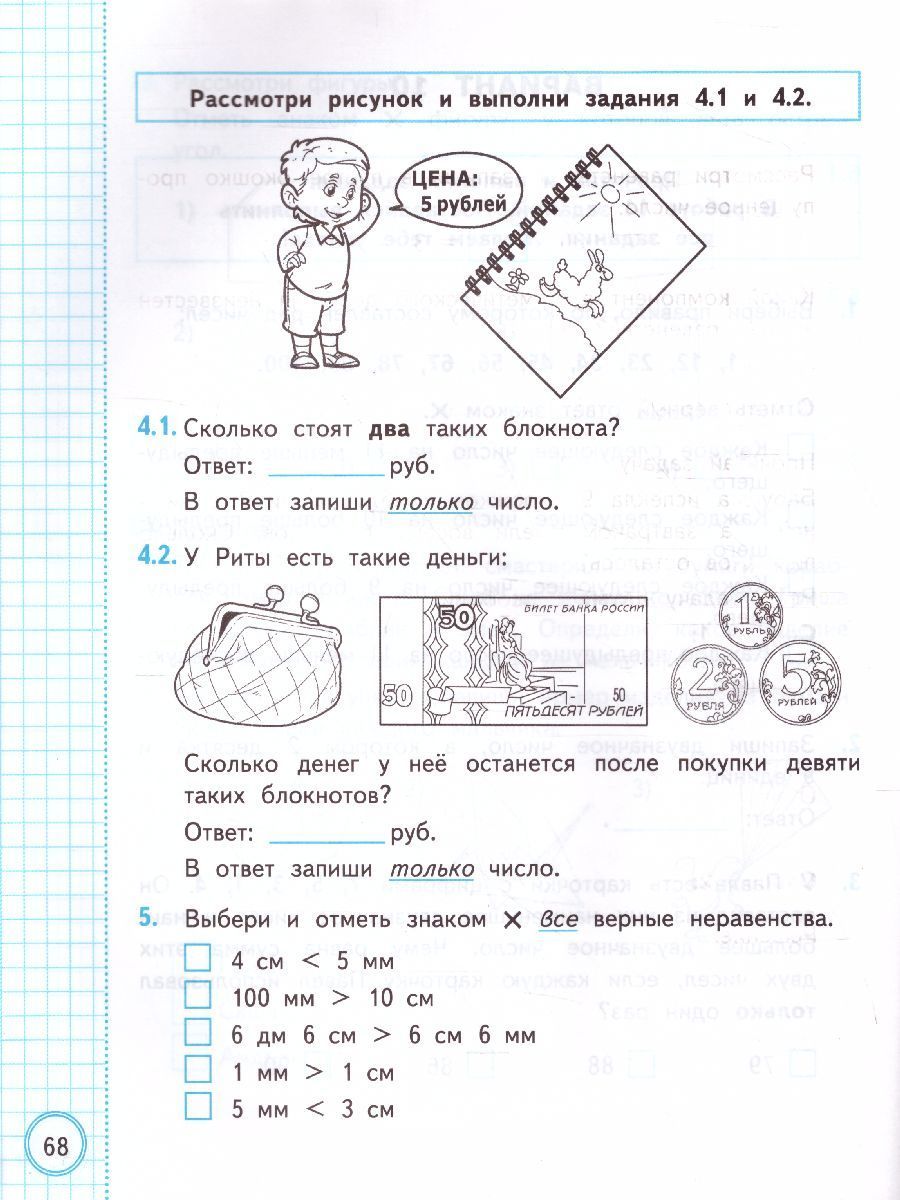 Рассмотри рисунок и выполни задания 4.1 и 4.2.
ЦЕНА:
5 рублей
4.1. Сколько стоят два таких блокнота?
Ответ: ________ руб.
В ответ запиши только число.
4.2. У Риты есть такие деньги:
50
БИЛЕТ БАНКА РОССИИ
50
50
ПЯТЬДЕСЯТ РУБЛЕЙ
1
РУБЛЬ
2
РУБЛЯ
5
РУБЛЕЙ
Сколько денег у неё останется после покупки девяти
таких блокнотов?
Ответ: ________ руб.
В ответ запиши только число.
5. Выбери и отметь знаком × все верные неравенства.
4 см < 5 мм
100 мм > 10 см
6 дм 6 см > 6 см 6 мм
1 мм > 1 см
5 мм < 3 см
68